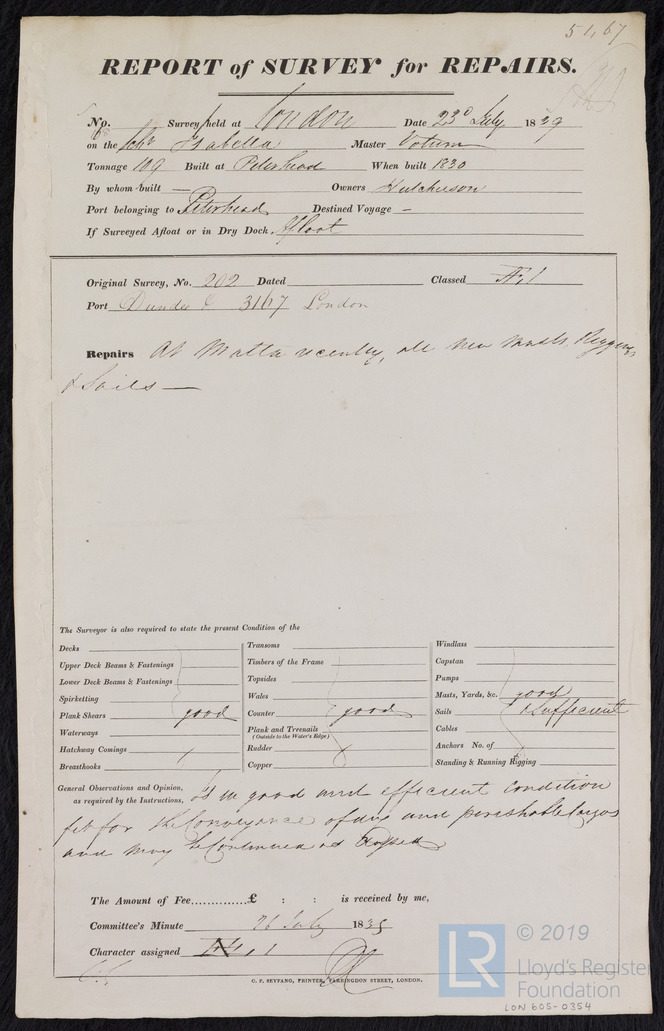 5467
REPORT of SURVEY for REPAIRS.
No. Survey held at London Date 23d July 1839
on the Schr Isabella Master
Tonnage 109 Built at Peterhead When built 1830
By whom built — Owners Hutchison
Port belonging to Peterhead Destined Voyage —
If Surveyed Afloat or in Dry Dock Afloat
Original Survey, No. 202 Dated Classed Æ 1
Port Dundee & 3167 London
Repairs At Malta recently, all new Masts, Rigging
& Sails —
The Surveyor is also required to state the present Condition of the
Decks
Upper Deck Beams & Fastenings
Lower Deck Beams & Fastenings
Spirketting
Plank Shears good
Waterways
Hatchway Comings
Breasthooks
Transoms
Timbers of the Frame
Topsides
Wales
Counter good
Plank and Treenails
(Outside to the Water's Edge)
Rudder
Copper
Windlass
Capstan
Pumps
Masts, Yards, &c. good
Sails & Sufficient
Cables
Anchors No. of
Standing & Running Rigging
General Observations and Opinion, is in good and efficient condition
as required by the Instructions,
fit for the Conveyance of dry and perishable Cargos
and may be Continued as Classed
The Amount of Fee..............£ : : is received by me,
Committee's Minute 26 July 1839
Character assigned Æ 1
C. F. SEYFANG, PRINTER, FARRINGDON STREET, LONDON.
LR © 2019
Lloyd's Register
Foundation
LON 605-0354